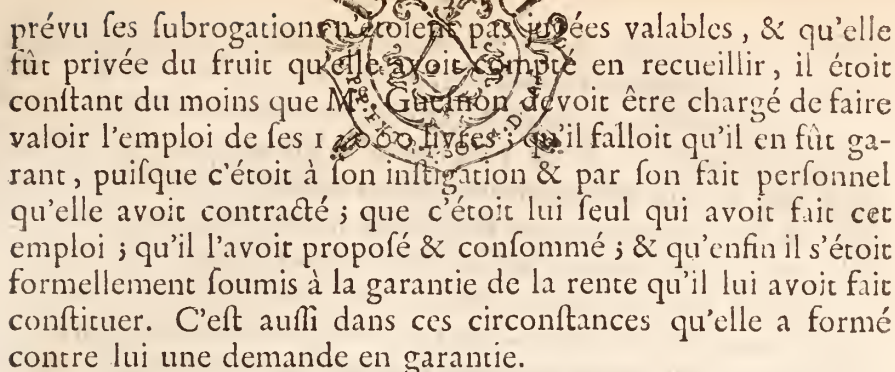 prévu ſes ſubrogations n'étoient pas jugées valables, & qu'elle
fût privée du fruit qu'elle avoit compté en recueillir, il étoit
conſtant du moins que Mᵉ devoit être chargé de faire
valoir l'emploi de ſes livres; qu'il falloit qu'il en fût ga-
rant, puiſque c'étoit à ſon inſtigation & par ſon fait perſonnel
qu'elle avoit contracté; que c'étoit lui ſeul qui avoit fait cet
emploi; qu'il l'avoit propoſé & conſommé; & qu'enfin il s'étoit
formellement ſoumis à la garantie de la rente qu'il lui avoit fait
conſtituer. C'eſt auſſi dans ces circonſtances qu'elle a formé
contre lui une demande en garantie.